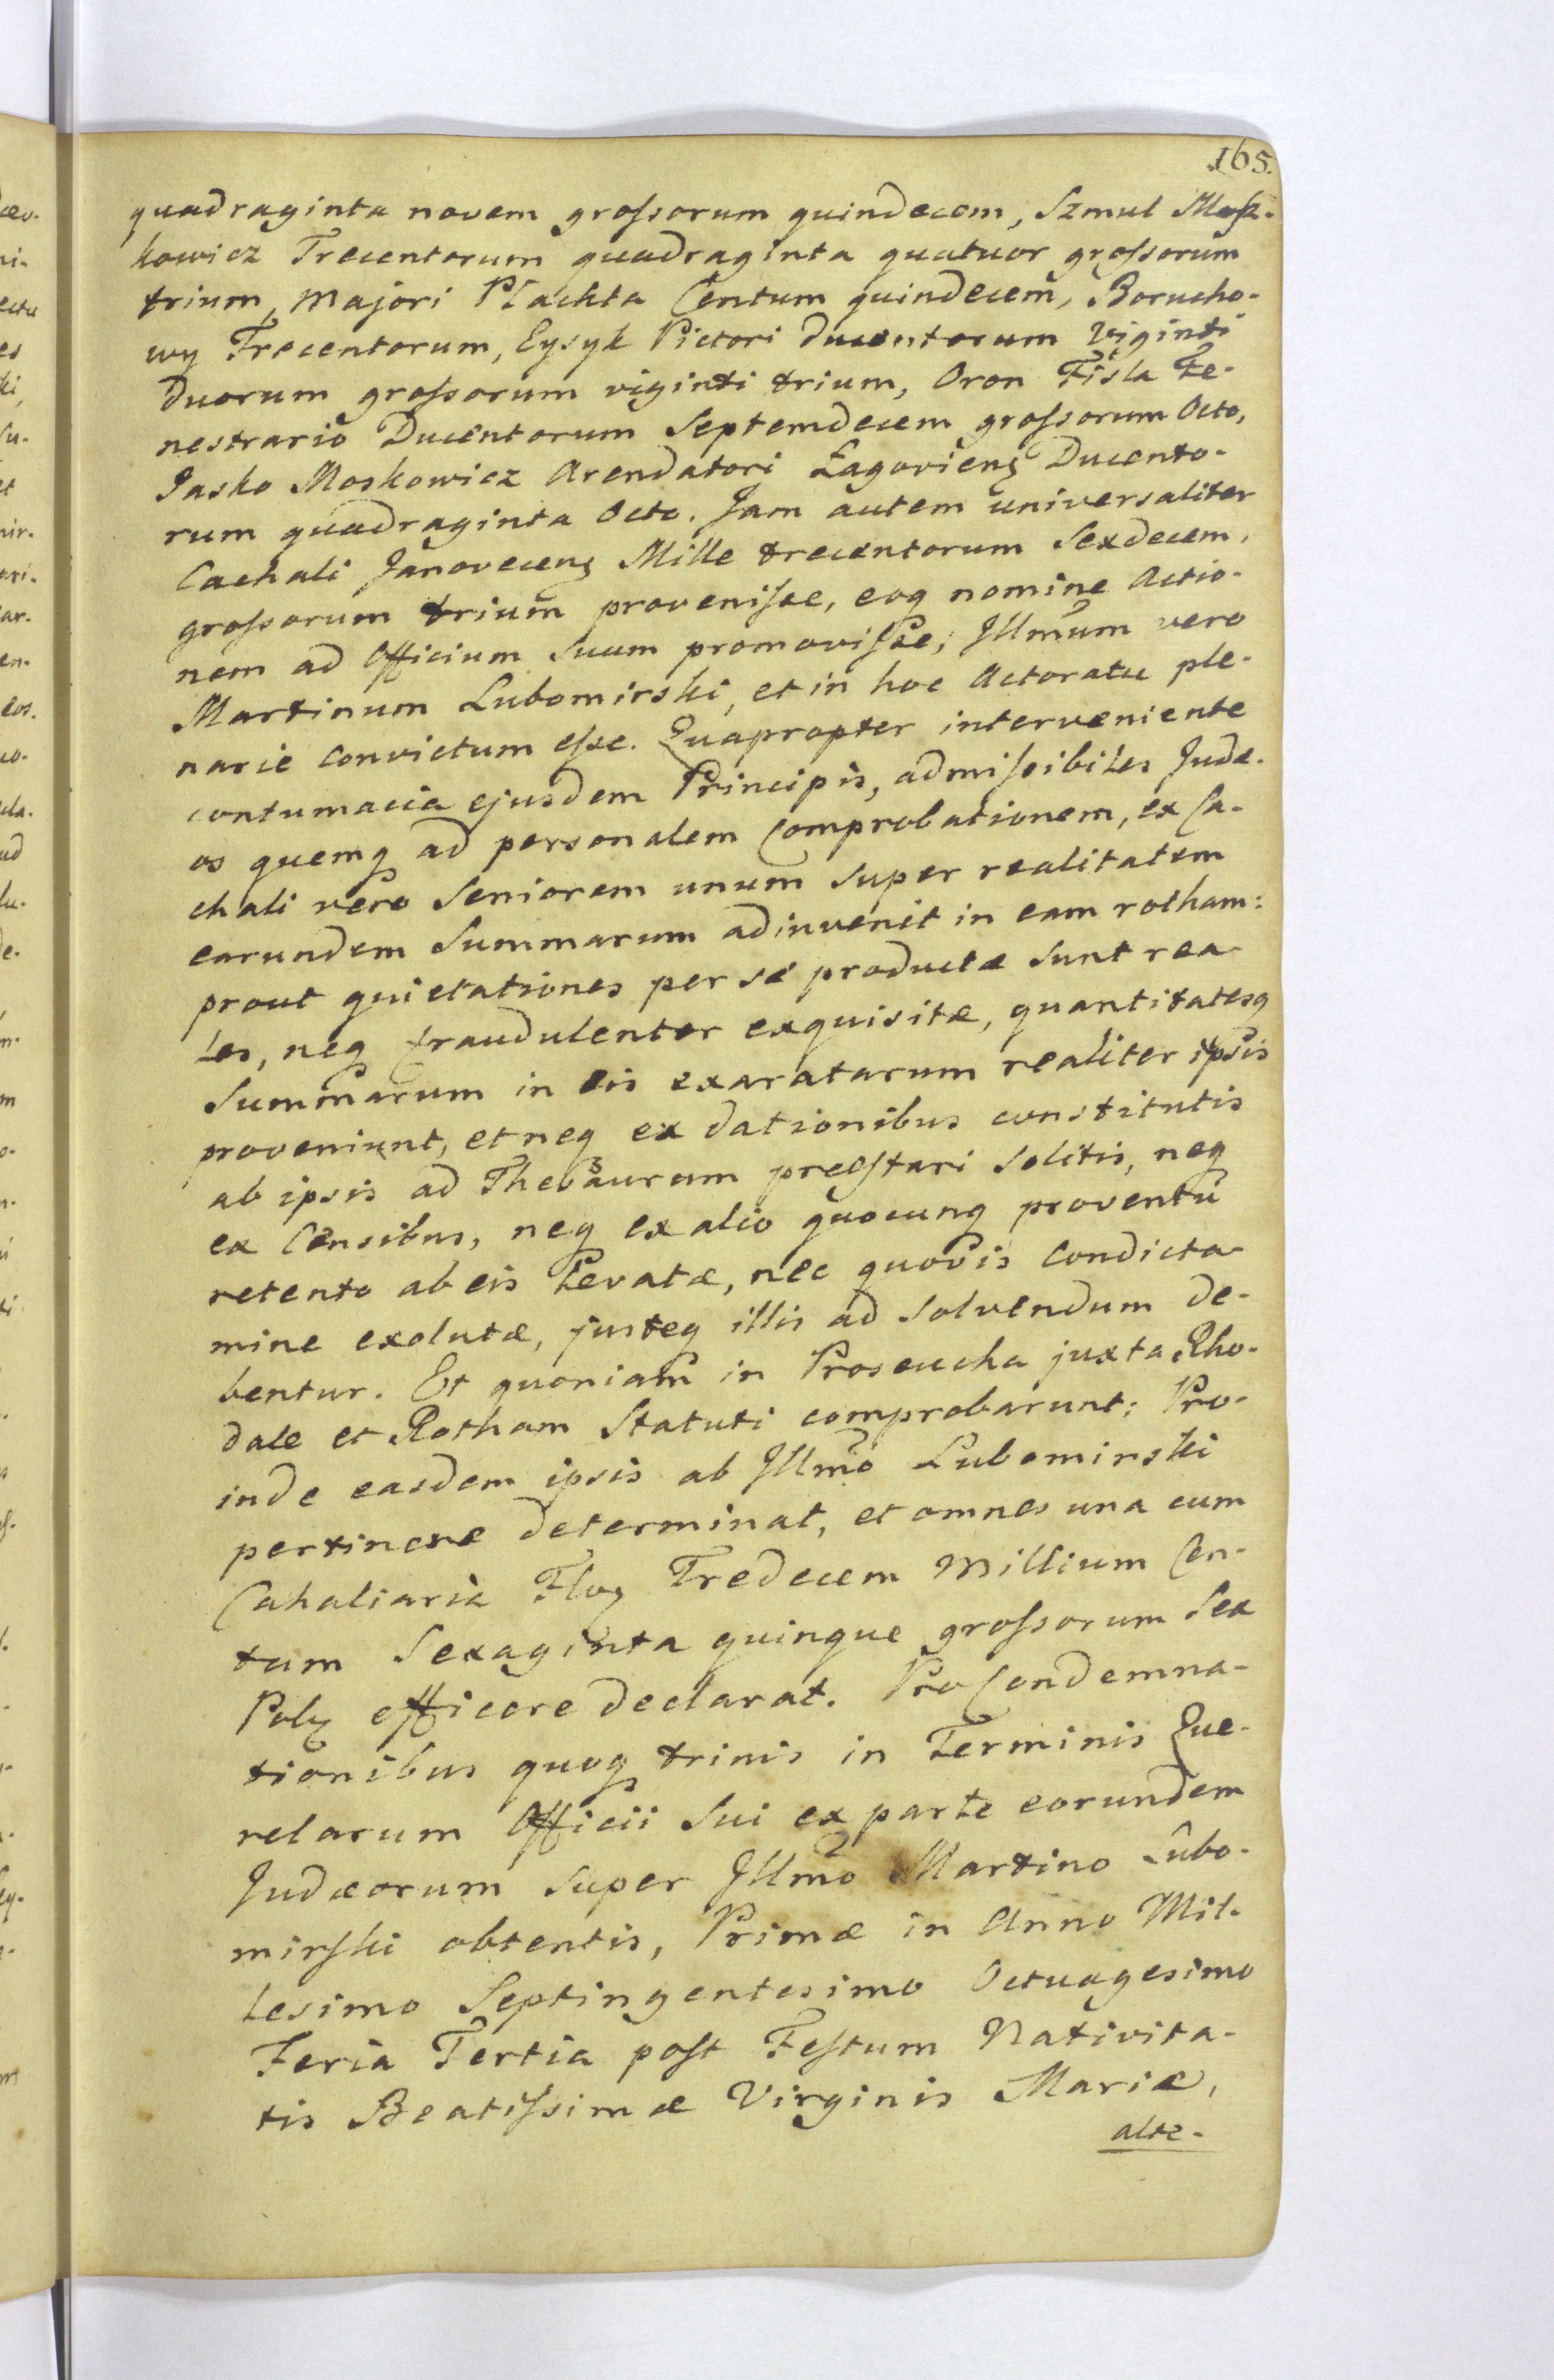 165.
quadraginta novem grossorum quindecem, Szmul Mosz-
kowicz Trecentorum quadraginta quatuor grossorum
trium, Majori Plachta Centum quindecem, Borucho-
wy Trecentorum, Eysyk Pictori ducentorum Viginti
duorum grossorum viginti trium, Oron Fisla Fe-
nestrario Ducentorum Septemdecem grossorum Octo,
Jasko Moskowicz Arendatori Łagovieng Ducento-
rum quadraginta Octo. Jam autem universaliter
Cachali Janoveceng Mille trecentorum Sexdecem,
grossorum trium provenisse, eoq nomine Actio-
nem ad Officium Suum promovisse; Illmum vero
Martinum Lubomirski, et in hoc Actoratu ple-
narie convictum esse. Quapropter interveniente
contumacia ejusdem Principis, admissibiles Judæ-
os quemq ad personalem Comprobationem, ex Ca-
chali vero Seniorem unum super realitatem
earundem Summarum adinvenit in eam rotham:
prout quietationes per se productæ sunt rea-
les, neq fraudulenter exquisitæ, quantitatesq
Summarum in eis exaratarum realiter ipsis
proveniunt, et neq ex dationibus constitutis
ab ipsis ad Thesaurum præstari solitis, neq
ex Censibus, neq ex alio quocunq proventu
retento ab eis levatæ, nec quovis Condicta-
mine exolutæ, justeq illis ad solvendum de-
bentur. Et quoniam in Proseucha juxta Rho-
dale et Rotham Statuti comprobarunt; Pro-
inde easdem ipsis ab Illmo Lubomirski
pertinere determinat, et omnes una cum
Cahaliaria Flog Tredecem Millium Cen-
tum Sexaginta quinque grossorum Sex
Polz efficere declarat. Pro Condemna-
tionibus quoq trinis in Terminis Que-
relarum Officii Sui ex parte eorundem
Judæorum super Illmo Martino Lubo-
mirski obtentis, Primæ in Anno Mil-
lesimo Septingentesimo Octuagesimo
Feria Tertia post Festum Nativita-
tis Beatissimæ Virginis Mariæ,
alte-